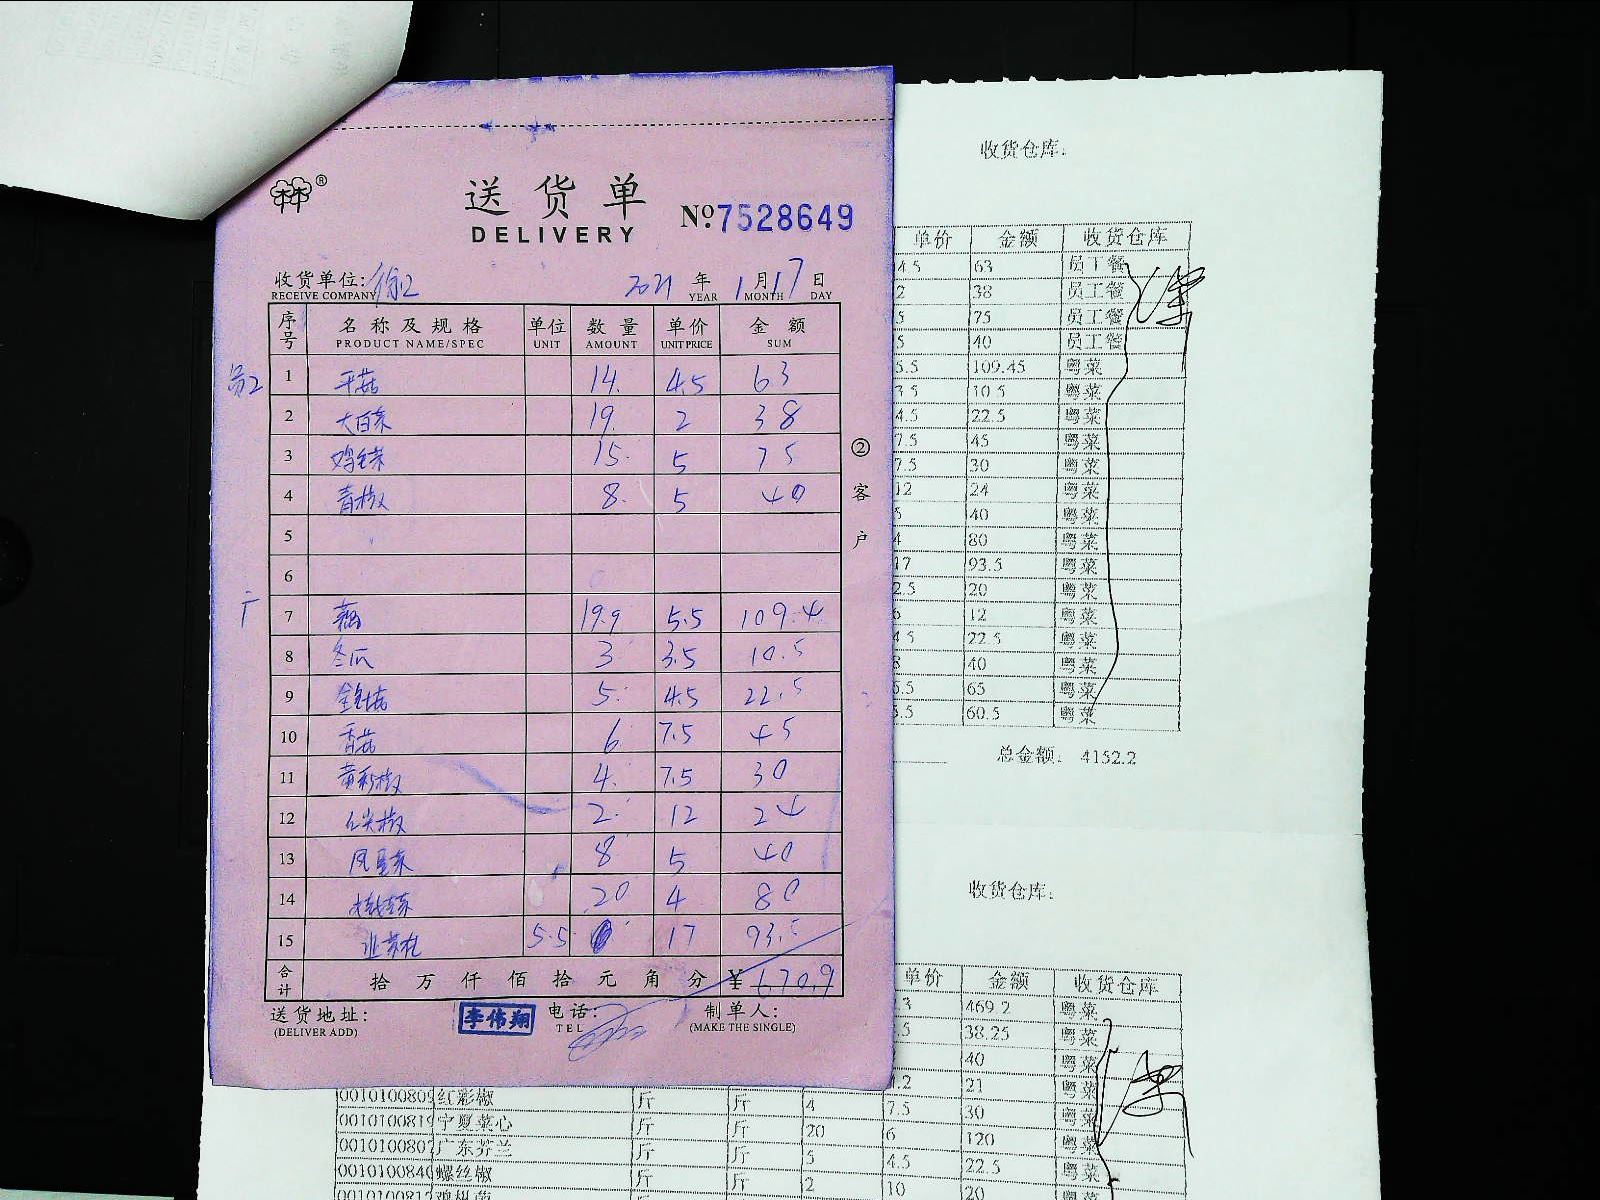 送货单
DELIVERY
№7528649
收货单位:
RECEIVE COMPANY
2021 年 1 月 17 日
YEAR MONTH DAY
序号 名称及规格 单位 数量 单价 金额
PRODUCT NAME/SPEC UNIT AMOUNT UNIT PRICE SUM
1 平菇 14. 4.5 63
2 大白菜 19. 2 38
3 15. 5 75
4 青椒 8. 5 40
5
6
7 藕 19.9 5.5 109.4
8 冬瓜 3 3.5 10.5
9 金针菇 5. 4.5 22.5
10 香菇 6 7.5 45
11 黄彩椒 4. 7.5 30
12 2. 12 24
13 8 5 40
14 20 4 80
15 5.5 17 93.5
合计 拾 万 仟 佰 拾 元 角 分 ¥ 670.9
送货地址:
(DELIVER ADD)
李伟翔
电话:
TEL
制单人:
(MAKE THE SINGLE)
②客户
收货仓库:
单价 金额 收货仓库
4.5 63 员工餐
2 38 员工餐
5 75 员工餐
5 40 员工餐
5.5 109.45 粤菜
3.5 10.5 粤菜
4.5 22.5 粤菜
7.5 45 粤菜
7.5 30 粤菜
12 24 粤菜
5 40 粤菜
4 80 粤菜
17 93.5 粤菜
2.5 20 粤菜
6 12 粤菜
4.5 22.5 粤菜
8 40 粤菜
6.5 65 粤菜
5.5 60.5 粤菜
总金额: 4152.2
收货仓库:
单价 金额 收货仓库
3 469.2 粤菜
.5 38.25 粤菜
40 粤菜
.2 21 粤菜
0010100809 红彩椒 斤 斤 4 7.5 30 粤菜
0010100819 宁夏菜心 斤 斤 20 6 120 粤菜
0010100807 广东芥兰 斤 斤 5 4.5 22.5 粤菜
0010100840 螺丝椒 斤 斤 2 10 20 粤菜